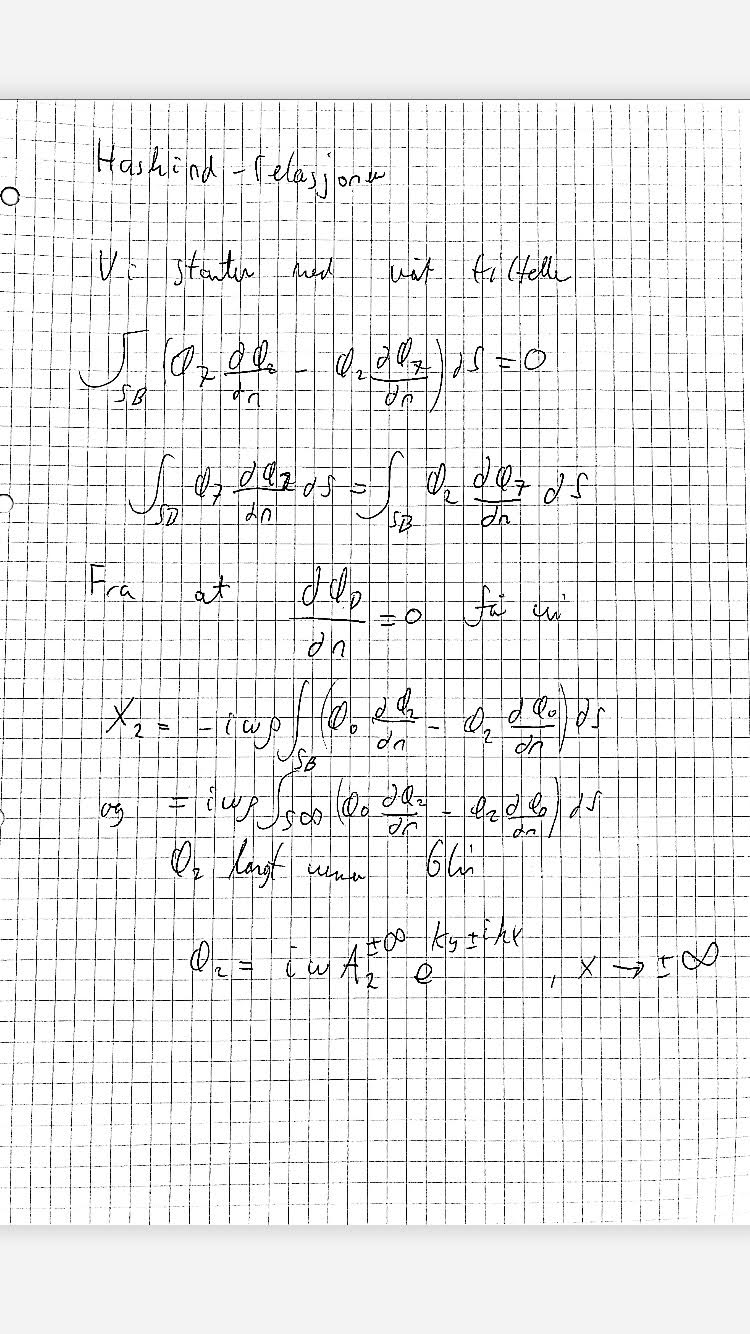 Haskind-relasjonen
Vi starter med vårt tilfelle
∫_{SB} (φ_7 ∂φ_2/∂n - φ_2 ∂φ_7/∂n) dS = 0
∫_{SB} φ_7 ∂φ_2/∂n dS = ∫_{SB} φ_2 ∂φ_7/∂n dS
Fra at ∂φ_D/∂n = 0 får vi
X_2 = -iωρ ∫_{SB} (φ_0 ∂φ_2/∂n - φ_2 ∂φ_0/∂n) dS
og = iωρ ∫_{S∞} (φ_0 ∂φ_2/∂n - φ_2 ∂φ_0/∂n) dS
φ_2 langt unna blir
φ_2 = iω A_2^{±∞} e^{ky±ikx} , x → ±∞